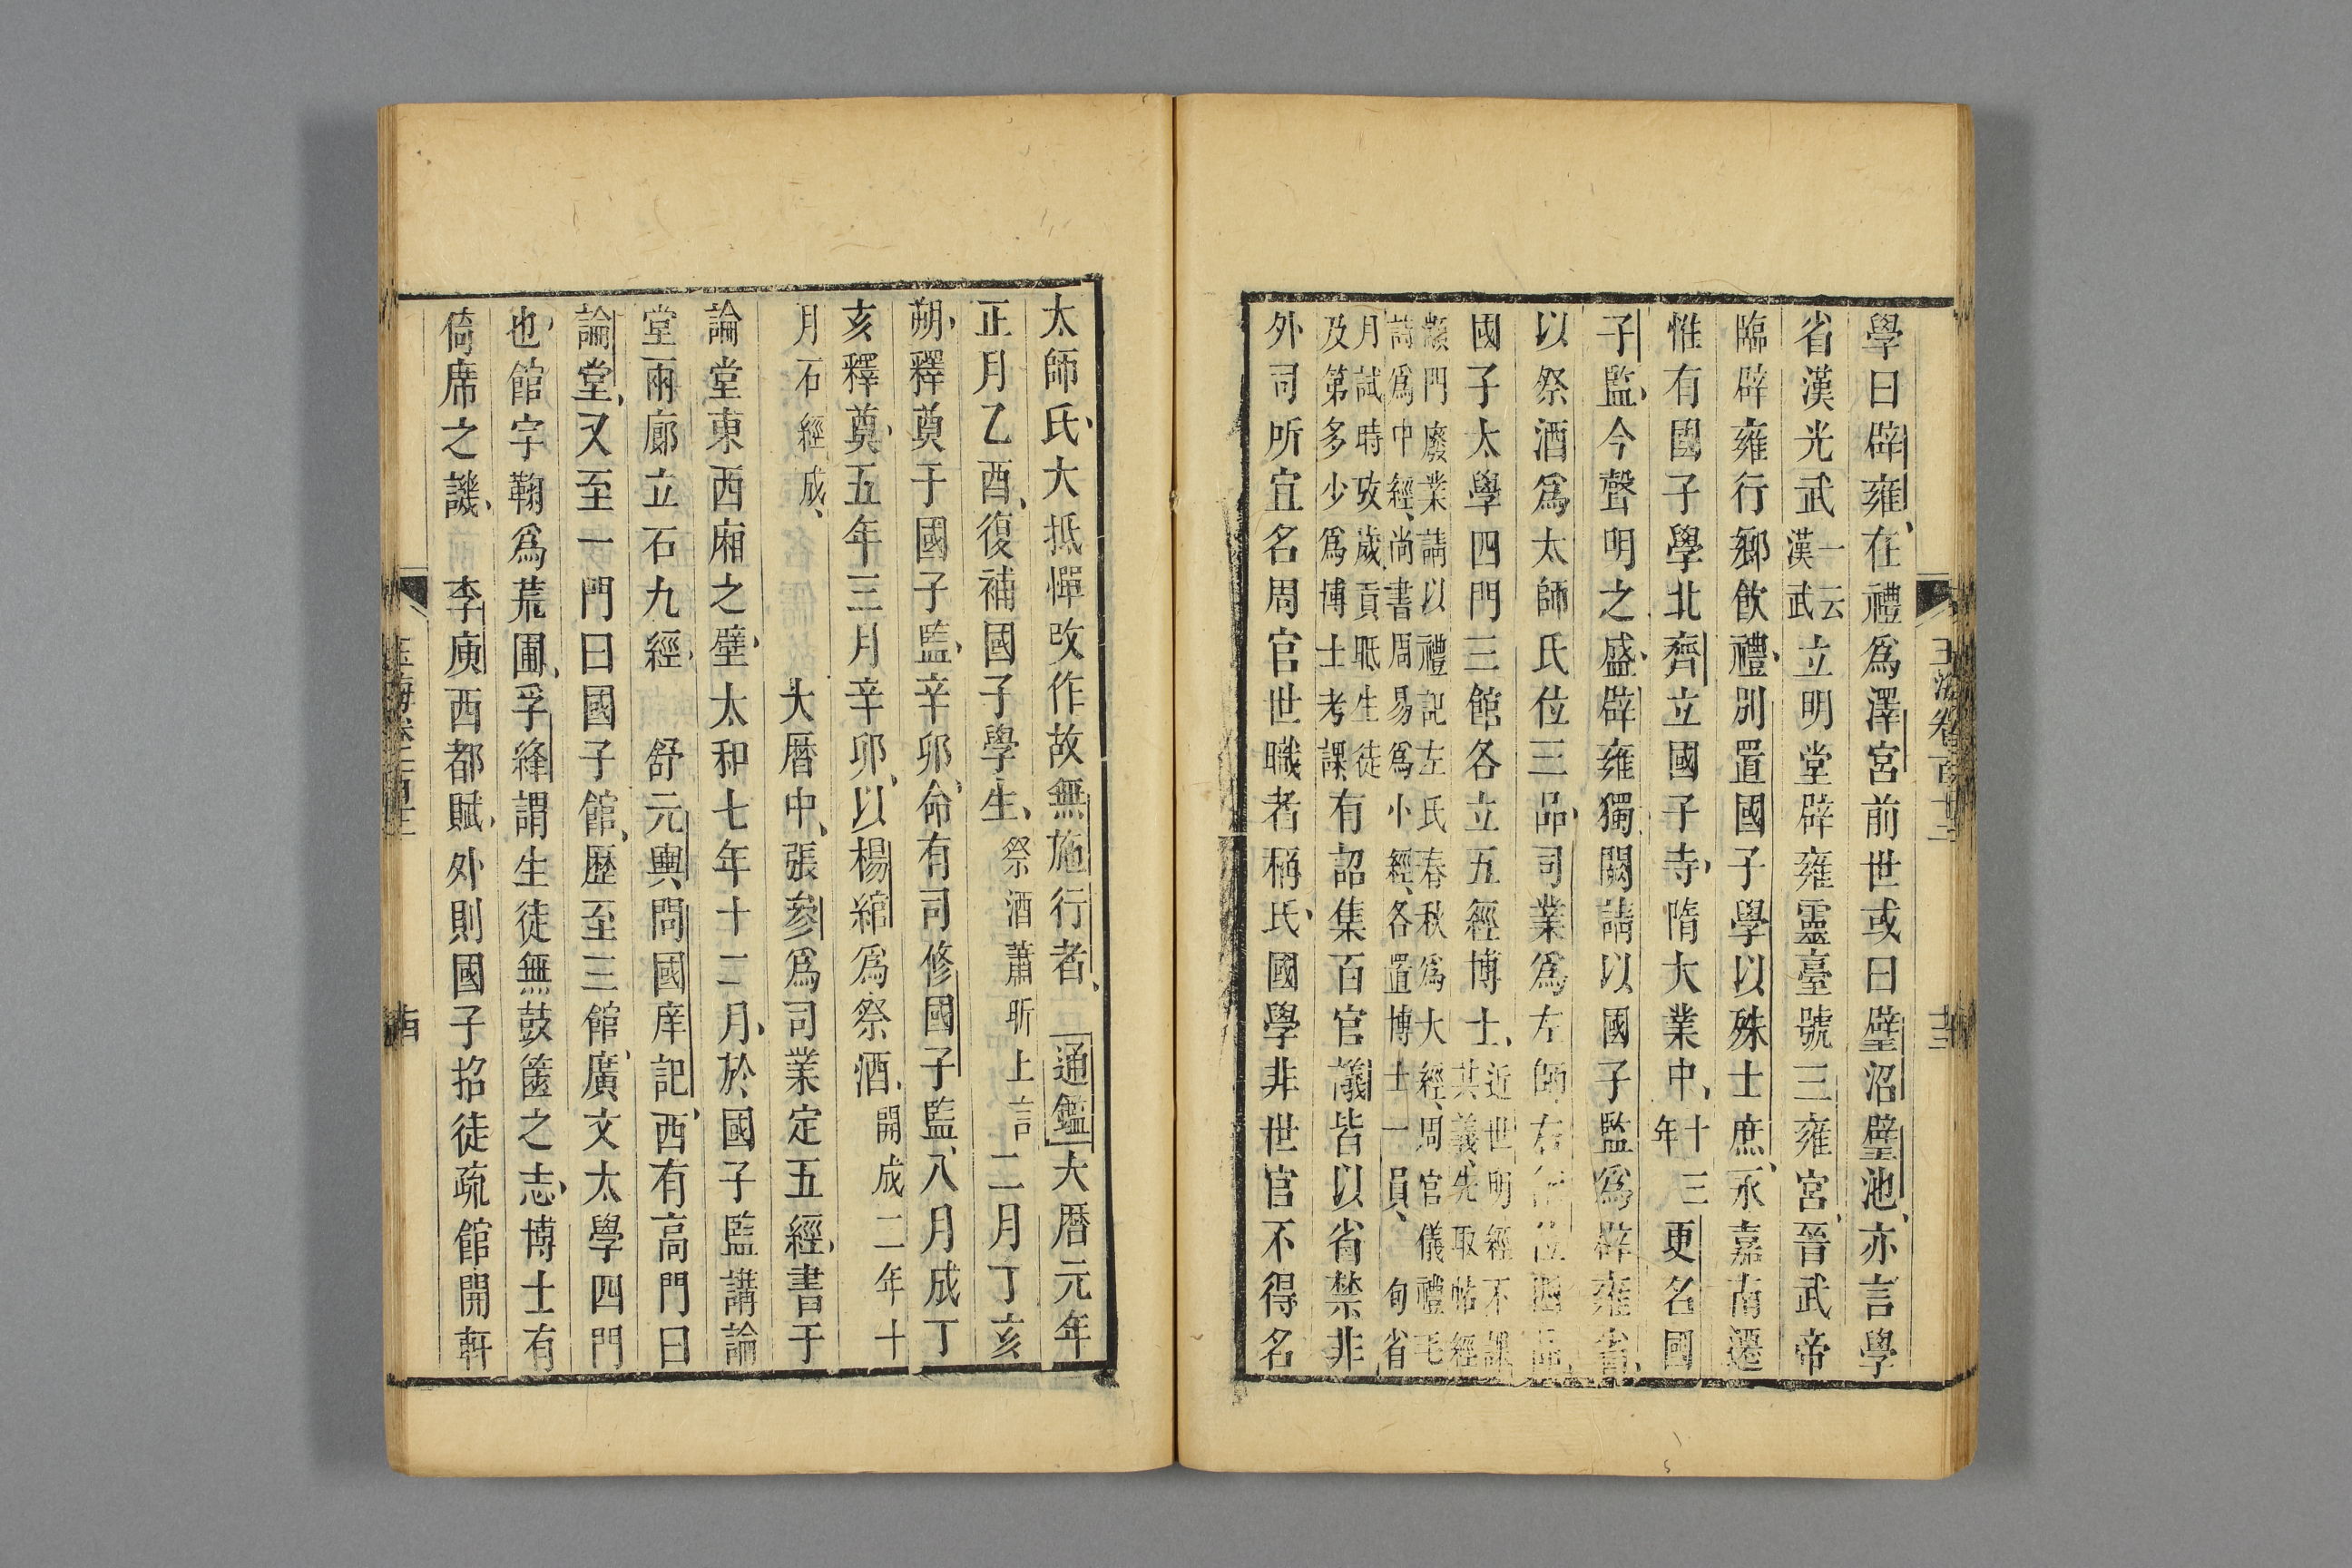 學曰辟雍在禮爲澤宮前世或曰璧沼璧池亦言學
省漢光武一云漢武立明堂辟雍靈臺號三雍宮晉武帝
臨辟雍行鄉飲禮別置國子學以殊士庶永嘉南遷
惟有國子學北齊立國子寺隋大業中十三年更名國
子監今聲明之盛辟雍獨闕請以國子監爲辟雍省
以祭酒爲太師氏位三品司業爲左師右師位四品
國子太學四門三館各立五經博士近世明經不課其義先取帖經
顓門廢業請以禮記左氏春秋爲大經周官儀禮毛
詩爲中經尚書周易爲小經各置博士一員旬省
月試時攷歲貢眡生徒
及第多少爲博士考課有詔集百官議皆以省禁非
外司所宜名周官世職者稱氏國學非世官不得名
玉海卷百十二
十三
太師氏大抵憚改作故無施行者通鑑大曆元年
正月乙酉復補國子學生祭酒蕭昕上言二月丁亥
朔釋奠于國子監辛卯命有司修國子監八月成丁
亥釋奠五年三月辛卯以楊綰爲祭酒開成二年十
月石經成大曆中張參爲司業定五經書于
論堂東西廂之壁太和七年十二月於國子監講論
堂兩廊立石九經舒元輿問國庠記西有高門曰
論堂又至一門曰國子館歷至三館廣文太學四門
也館宇鞠爲荒圃孚絳謂生徒無鼓篋之志博士有
倚席之譏李庾西都賦外則國子招徒疏館開軒